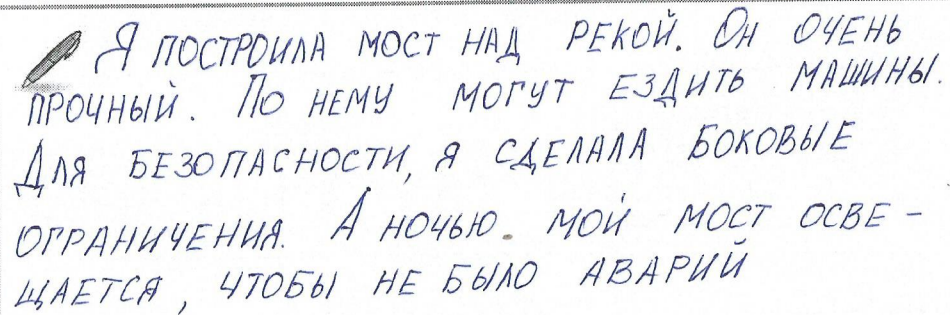 Я ПОСТРОИЛА МОСТ НАД РЕКОЙ. ОН ОЧЕНЬ
ПРОЧНЫЙ. ПО НЕМУ МОГУТ ЕЗДИТЬ МАШИНЫ.
ДЛЯ БЕЗОПАСНОСТИ, Я СДЕЛАЛА БОКОВЫЕ
ОГРАНИЧЕНИЯ. А НОЧЬЮ МОЙ МОСТ ОСВЕ-
ЩАЕТСЯ, ЧТОБЫ НЕ БЫЛО АВАРИЙ